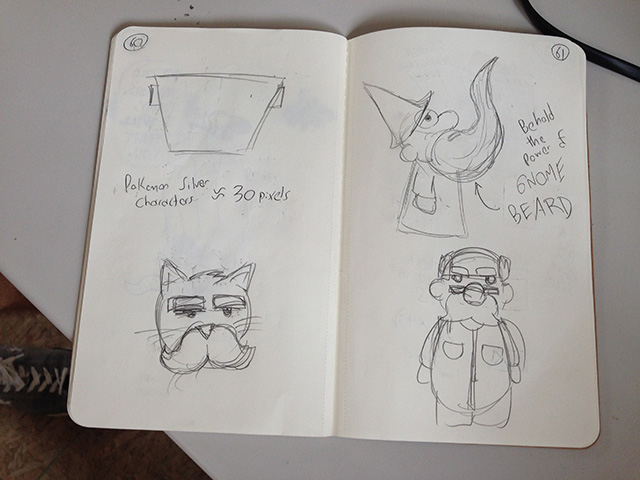 60
Pokemon Silver
characters ≈ 30 pixels
61
Behold
the
Power of
GNOME
BEARD